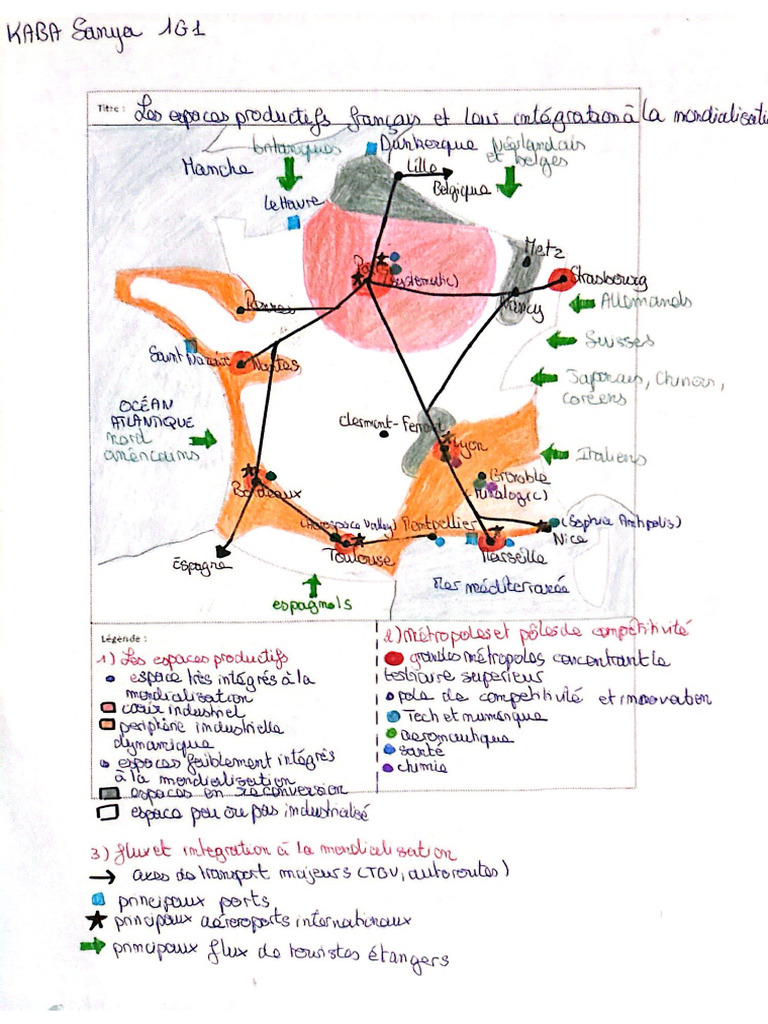 KABA Sanya 1G1
Titre : Les espaces productifs français et leur intégration à la mondialisati
britanniques
Dunkerque
Néerlandais
et belges
Manche
Lille
Belgique
Le Havre
Metz
Paris
(systematic)
Strasbourg
Rennes
Nancy
Allemands
Suisses
Saint Nazaire
Nantes
Japonais, Chinois,
coréens
OCÉAN
ATLANTIQUE
nord
américains
Clermont-Ferrand
Lyon
Italiens
Grenoble
(Minalogic)
Bordeaux
(Aerospace Valley)
Montpellier
(Sophia Antipolis)
Nice
Toulouse
Marseille
Espagne
Mer méditerranée
espagnols
Légende :
1) Les espaces productifs
espace très intégrés à la
mondialisation
cœur industriel
périphérie industrielle
dynamique
espaces faiblement intégrés
à la mondialisation
espaces en reconversion
espace peu ou pas industrialisé
2) Métropoles et pôles de compétitivité
grandes métropoles concentrant le
tertiaire supérieur
pole de compétitivité et innovation
Tech et numérique
aéronautique
santé
chimie
3) flux et intégration à la mondialisation
axes de transport majeurs (TGV, autoroutes)
principaux ports
principaux aéreoports internationaux
principaux flux de touristes étangers